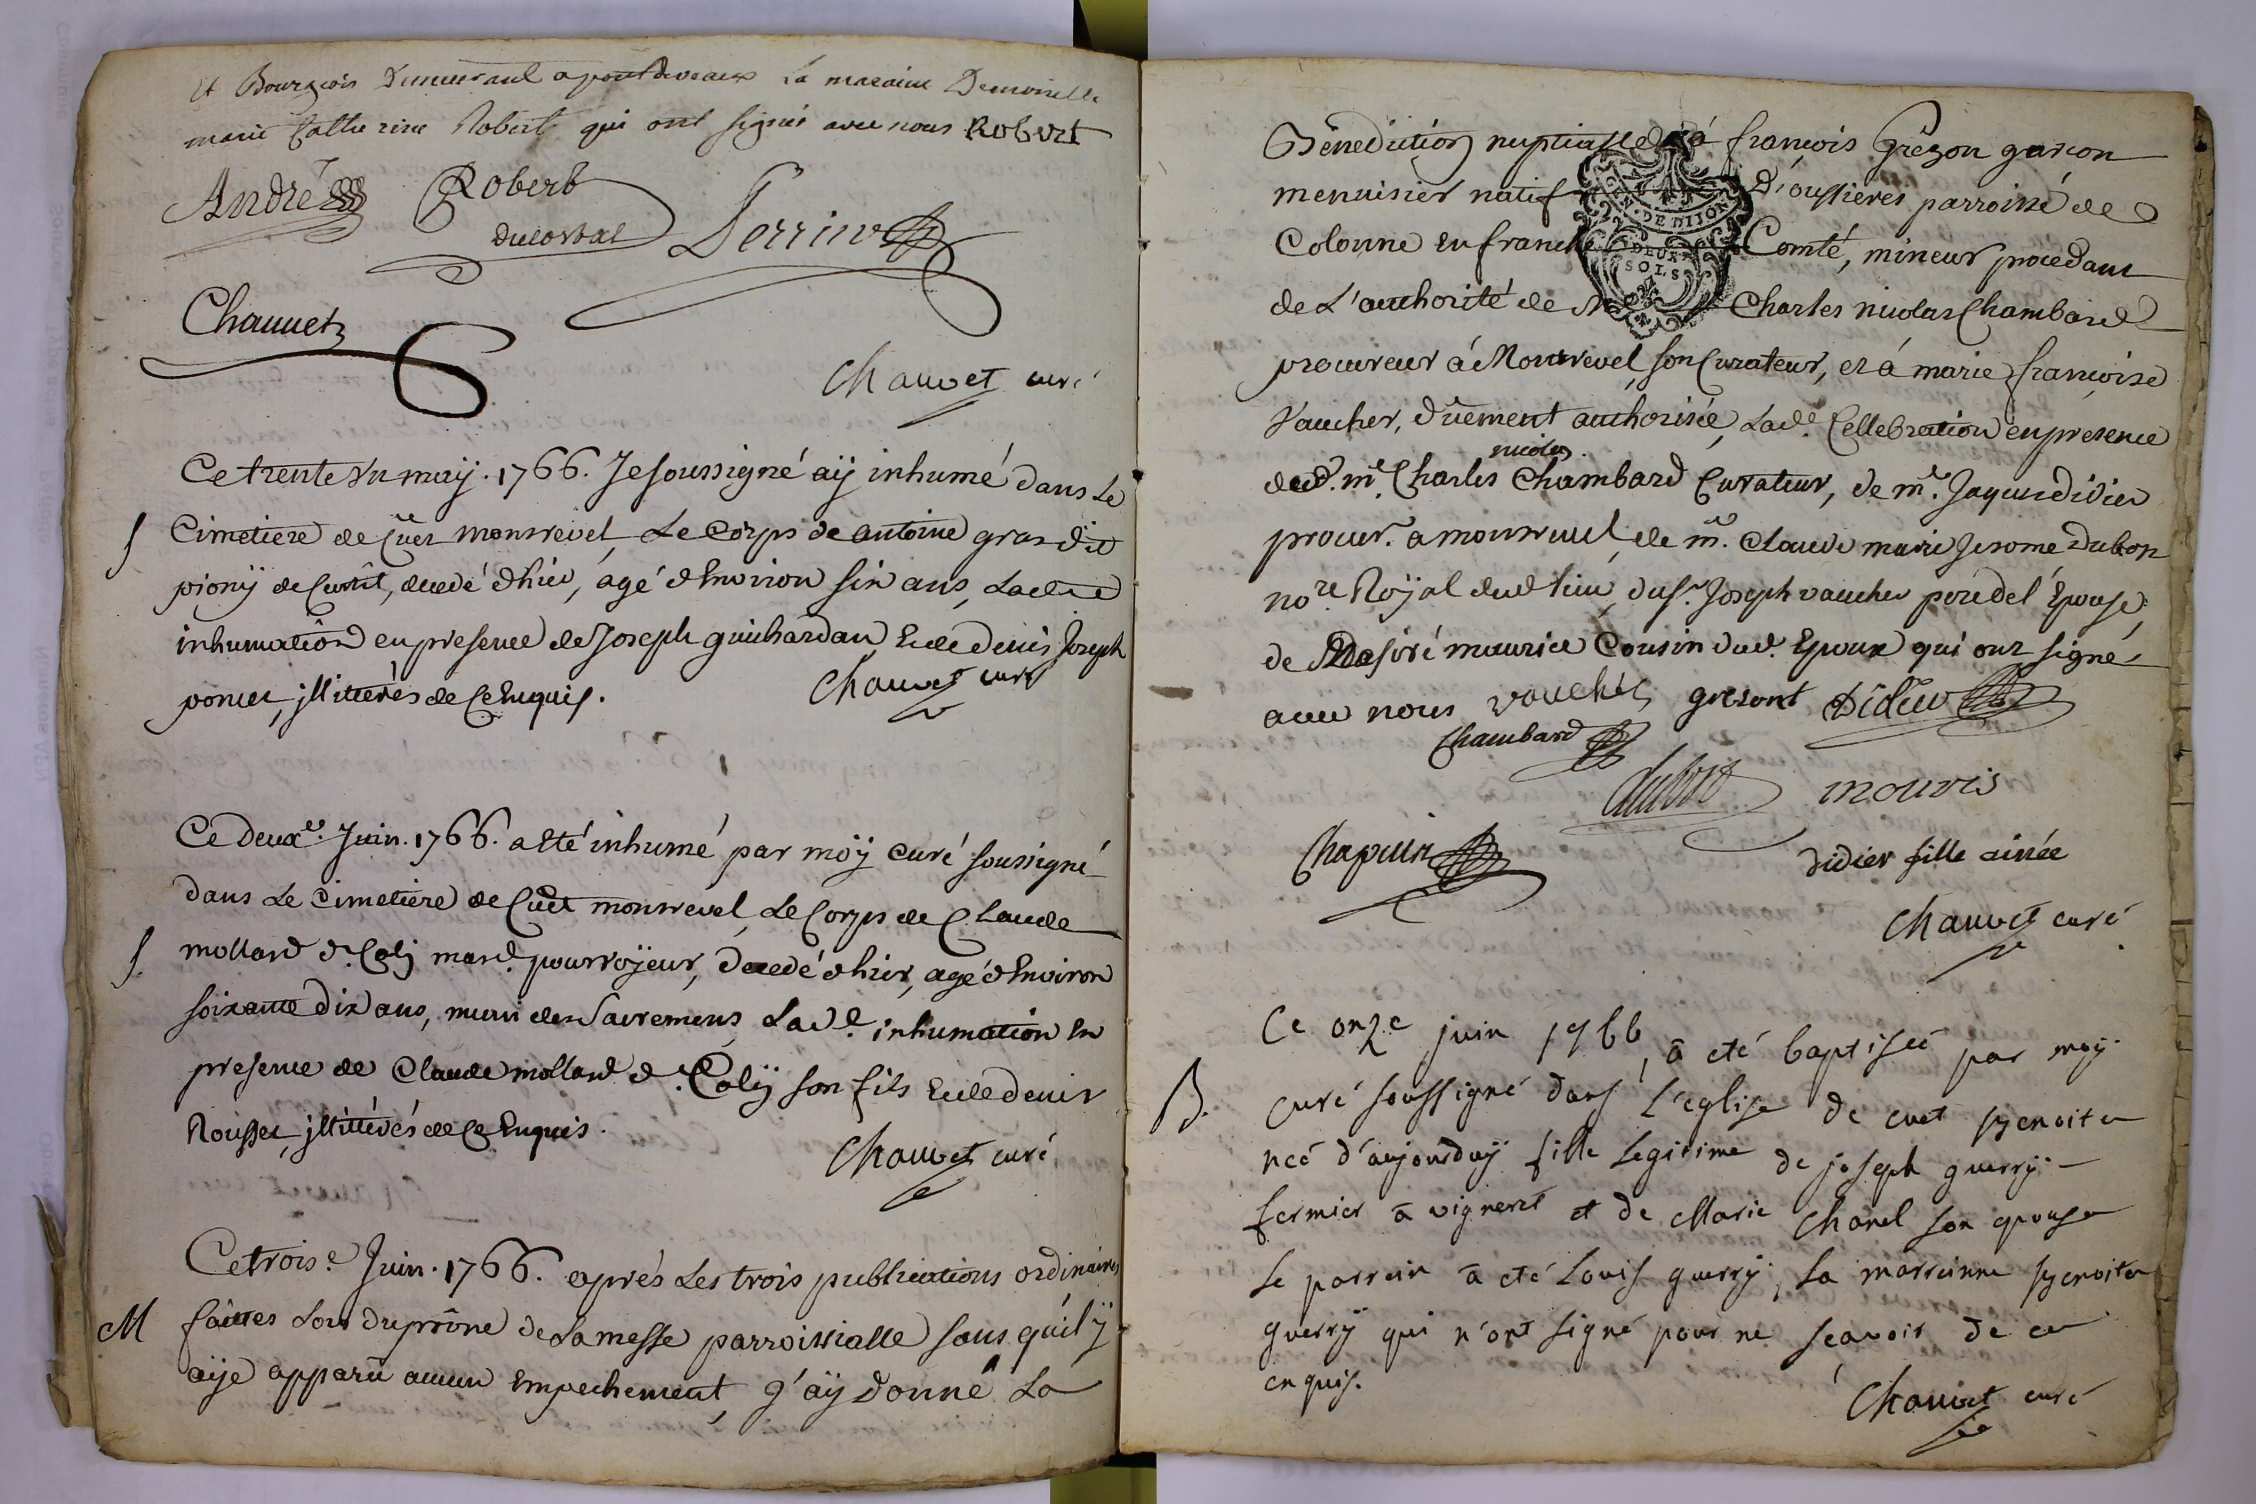 et Bourgeois Demeurant a pontdevaux La maraine Demoiselle
marie Catherine Robert qui ont signés avec nous Robert
André Robert
ducostal Perrin
Chauvet
Chauvet curé
Ce trente un maÿ. 1766. Je soussigné aÿ inhumé dans Le
S Cimetiere de Cuet monrevel, Le Corps de antoine gras dit
pionÿ de Curtit, decedé d'hier, ágé d'Environ six ans, Ladite
inhumation en presence de Joseph guichardan, Et de Denis Joseph
ponet, jllitterés de Ce Enquis.
Chauvet curé
Ce deuxe. Juin. 1766. a Eté inhumé par moÿ curé soussigné
dans Le cimetiere de Cuet monrevel, Le Corps de Claude
S. mollard d. Colÿ mard. pourvoÿeur, decedé d'hier, agé d'Environ
soixante dix ans, muni des Sacremens, Lad.e inhumation En
presence de Claude mollard d. Colÿ son fils Et de Denis
Rousset, jllitterés de Ce Enquis.
Chauvet curé
Ce trois.e Juin. 1766. aprés Les trois publications ordinaires
M faittes Lors du prône de La messe parroissialle sans qu'il ÿ
aÿe apparû aucun Empechement, j'aÿ donné La
Bénediction nuptialle á françois Grézon garçon
menuisier natif d'oussieres parroisse de
GEN. DE DIJON
Colonne En franche Comté, mineur procedant
DEUX
SOLS
de L'authorité de Me Charles nicolas Chambard
procureur á Montrevel, son Curateur, et á marie françoise
Vaucher, duement authorisée, Lad.e Cellebration en presence
nicolas
dud. me. Charles Chambard Curateur, de me. Jaques didier
procur. a monrevel, de me. Claude marie Jerome Dubost
nore. Roÿal dud. Lieu, du sr. Joseph vaucher pere de l'Epouse,
de Desiré maurice Cousin dud. Epoux qui ont signé
avec nous vaucher gresont Didier
Chambard
dubost mouris
Chapuis didier fille ainée
Chauvet curé
Ce onze juin 1766, a eté baptiseé par moÿ
B. curé soussigné dans l'eglise de cuet benoite
neé d'aujourduÿ fille legitime de joseph guerrÿ
fermier a vigneret et de Marie Charel son epouse
le parrein a eté Louis guerrÿ, la marreinne benoite
guerrÿ qui n'ont signé pour ne scavoir de ce
enquis.
Chauvet curé